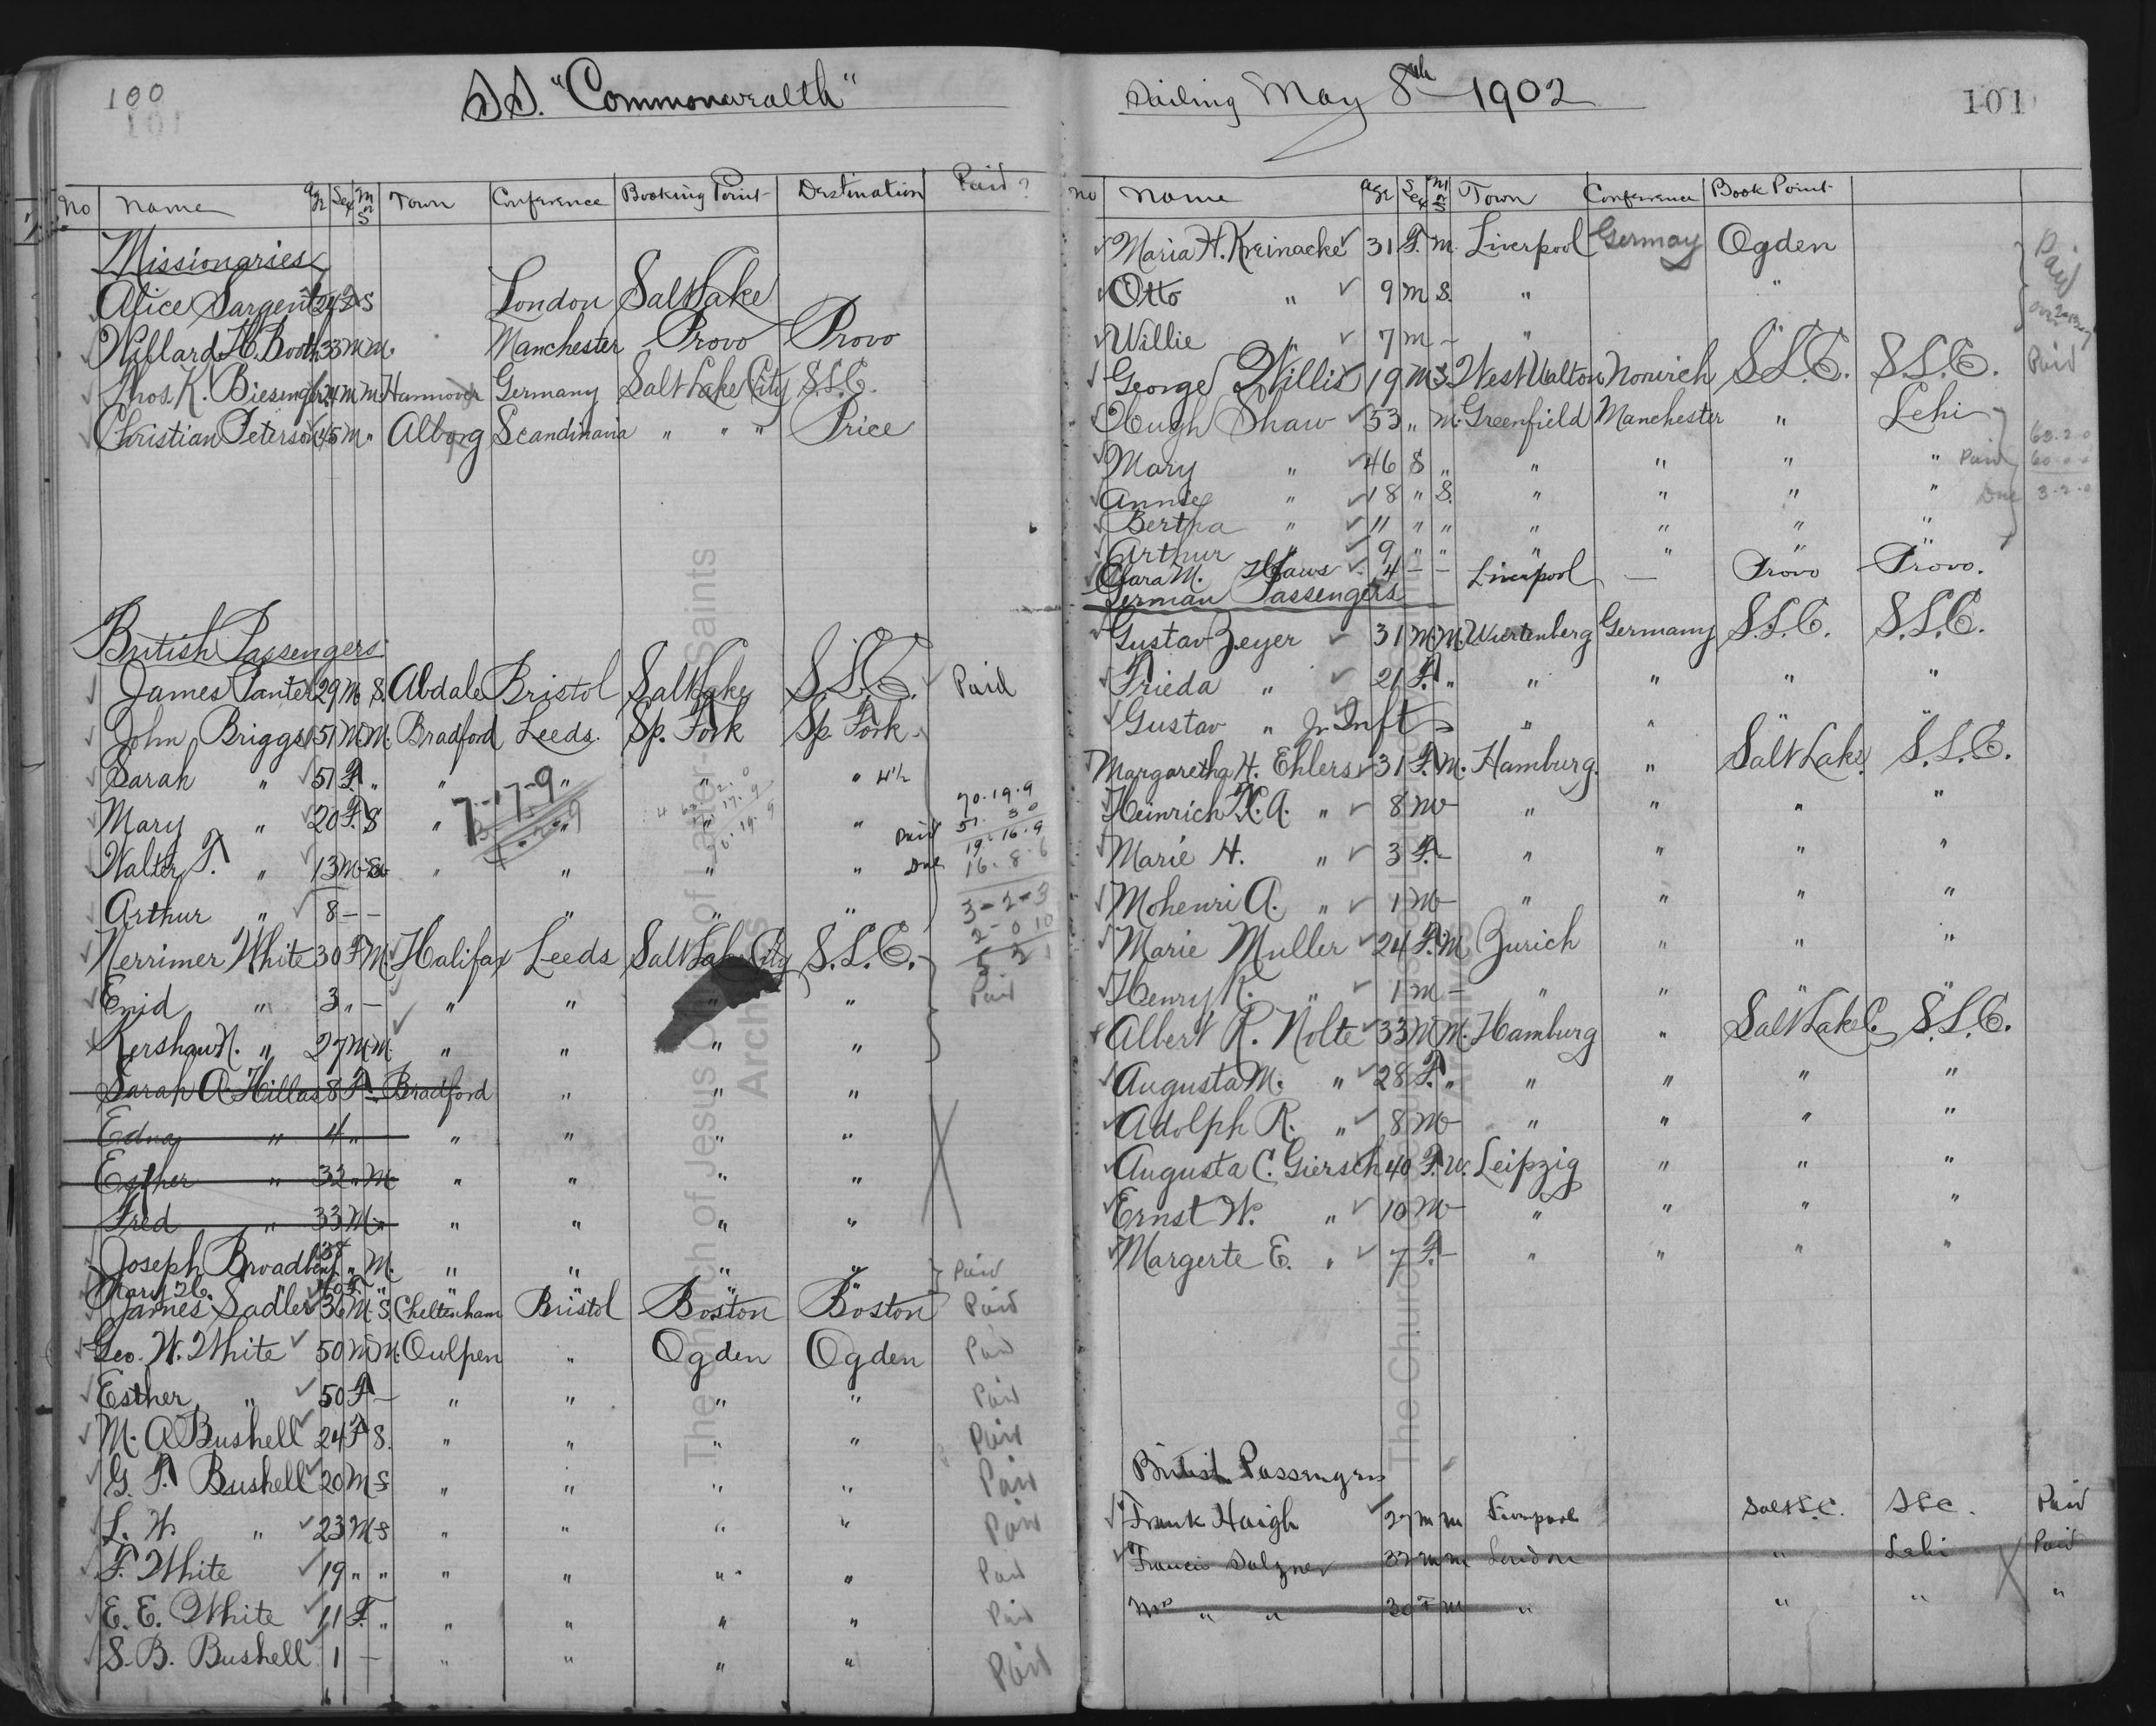 100
101
S.S. "Commonwealth"
No Name Age Sex M or S Town Conference Booking Point Destination Paid?
Missionaries
Alice Sargent 24 S London Salt Lake
Willard H. Booth 33 M M. Manchester Provo Provo
Thos. K. Biesenger 24 M M. Hannover Germany Salt Lake City S.L.C.
Christian Peterson 45 M " Alborg Scandinavia " " " Price
British Passengers
James Panter 29 M S. Abdale Bristol Salt Lake S.L.C. Paid
John Briggs 51 M M. Bradford Leeds. Sp. Fork Sp. Fork
Sarah " 51 F. " " " " " 4 1/2
7-17-9
Mary " 20 F. S " " " "
70.19.9
Paid 51. 3 0
19.16.9
Walter F. " 13 M " " " "
Due 16.8.6
Arthur " 8 — — " " "
3-2-3
2-0 10
5 3 1
Nerrimer White 30 F M. Halifax Leeds Salt Lake City S.L.C.
Paid
Enid " 3 " — " " " "
Kershaw N. " 27 M M. " " " "
Sarah A. Hillas 8 F — Bradford " " "
Edna " 4 " " " " "
Esther " 32 " M " " " "
Fred " 33 M " " " " "
Joseph Broadbent 38 " M. " " " " Paid
Mary H. " 40 F. "
James Sadler 36 M S Cheltenham Bristol Boston Boston Paid
Geo. W. White 50 M M. Owlpen " Ogden Ogden Paid
Esther " 50 F — " " " " Paid
M. A. Bushell 24 F S. " " " " Paid
G. F. Bushell 20 M S " " " " Paid
L. W. " 23 M S " " " " Paid
F. White 19 " " " " " " Paid
E. E. White 11 F. " " " " " Paid
S. B. Bushell 1 — " " " " Paid
Sailing May 8th 1902
101
No Name Age Sex M or S Town Conference Book Point
Maria H. Kreinacke 31 F. M. Liverpool Germay Ogden
Paid
Otto " 9 M S. " "
Willie " 7 M — "
George Willis 19 M S. West Walton Norwich S.L.C. S.L.C. Paid
Hugh Shaw 53 " M. Greenfield Manchester " Lehi
63.2.0
Mary " 46 S " " " " " Paid 60
Annie " 18 " S. " " " " Due 3-2-0
Bertha " 11 " " " " " "
Arthur " 9 " " " " " "
Clara M. Haws 4 — — Liverpool — Provo Provo.
German Passengers
Gustav Zeyer 31 M M. Wurtenberg Germany S.L.C. S.L.C.
Frieda " 21 F. " " " " "
Gustav " Jr. Inft — " " " "
Margaretha H. Ehlers 31 F. M. Hamburg. " Salt Lake S.L.C.
Heinrich K. A. " 8 M — " " " "
Marie H. " 3 F. — " " " "
Mohenri A. " 1 M — " " " "
Marie Muller 24 F. M Zurich " " "
Henry K. " 1 M — " " " "
Albert R. Nolte 33 M M. Hamburg " Salt Lake C. S.L.C.
Augusta M. " 28 F. " " " " "
Adolph R. " 8 M — " " " "
Augusta C. Giersch 40 F. W. Leipzig " " "
Ernst W. " 10 M — " " " "
Margerte E. " 7 F. — " " " "
British Passengers
Frank Haigh 27 M M Liverpool Salt L.C. SLC. Paid
Francis Salzner 33 M M London " Lehi Paid
Mrs " " 30 F M " " " "
The Church of Jesus Christ of Latter-day Saints
Archives